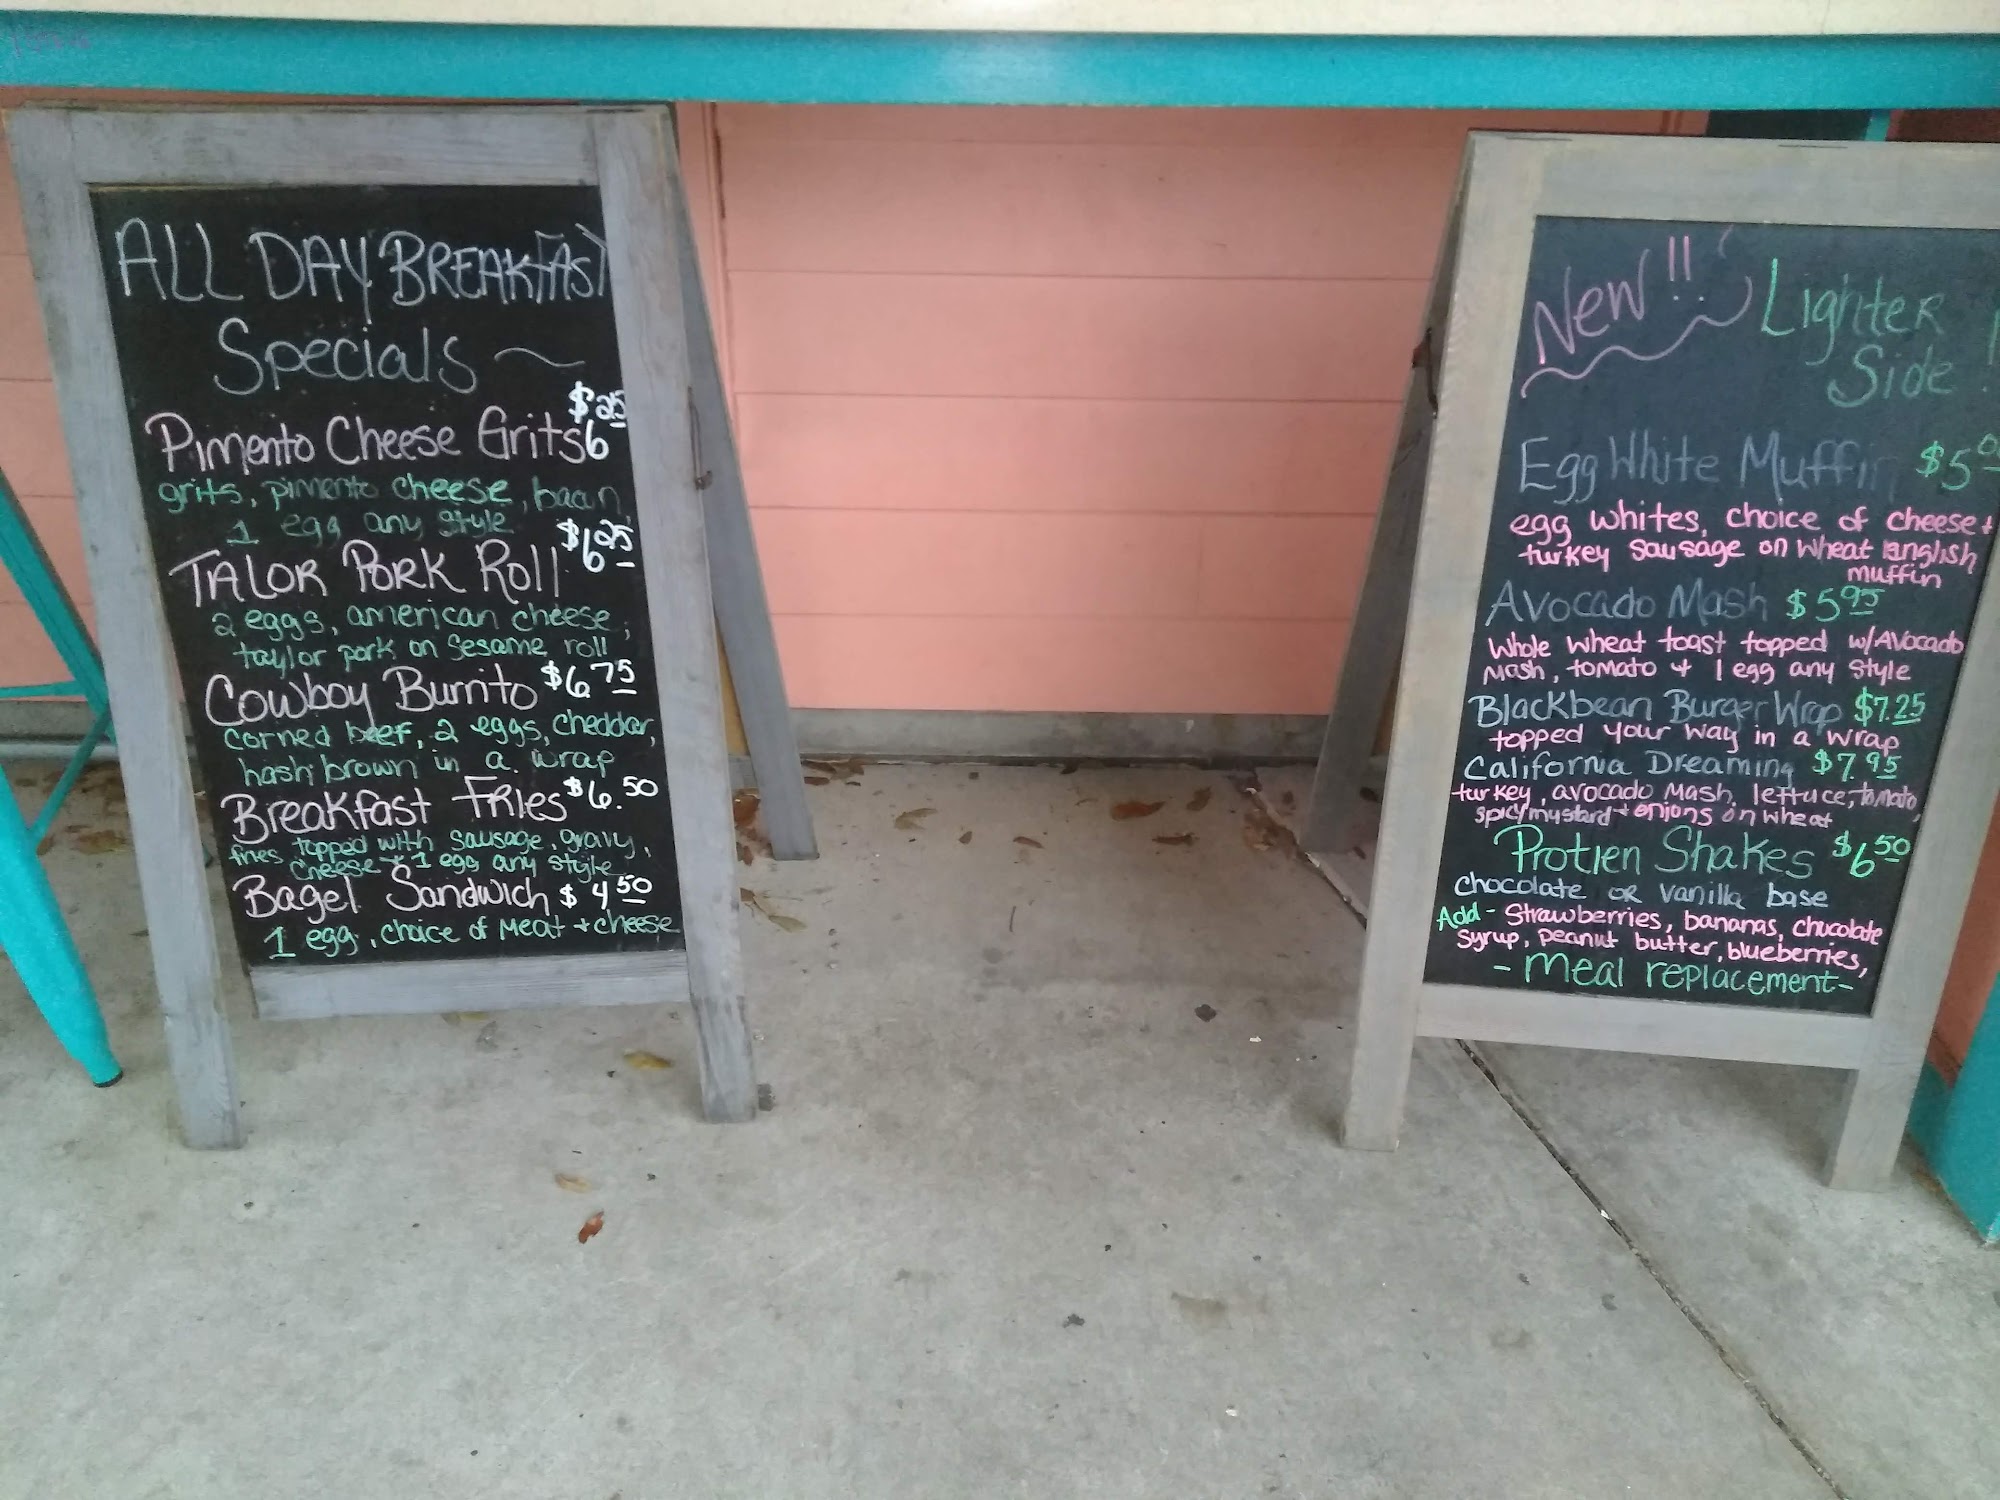 ALL DAY BREAKFAST
Specials ~
Pimento Cheese Grits $6 25
grits, pimento cheese, bacon,
1 egg any style
TALOR PORK Roll $6 25
2 eggs, american cheese,
taylor pork on sesame roll
Cowboy Burrito $6.75
corned beef, 2 eggs, cheddar,
hash brown in a wrap
Breakfast FRies $6.50
fries topped with sausage, gravy,
cheese + 1 egg any style
Bagel Sandwich $4 50
1 egg, choice of meat + cheese
New!! Lighter
Side!
Egg White Muffin
egg whites, choice of cheese +
turkey sausage on wheat english
muffin
Avocado Mash $5 95
Whole wheat toast topped w/Avocado
mash, tomato + 1 egg any style
Blackbean Burger Wrap $7.25
topped your way in a wrap
California Dreaming $7.95
turkey, avocado mash, lettuce, tomato,
spicy mustard + onions on wheat
Protien Shakes $6 50
chocolate or vanilla base
Add- Strawberries, bananas, chocolate
syrup, peanut butter, blueberries,
- Meal replacement -